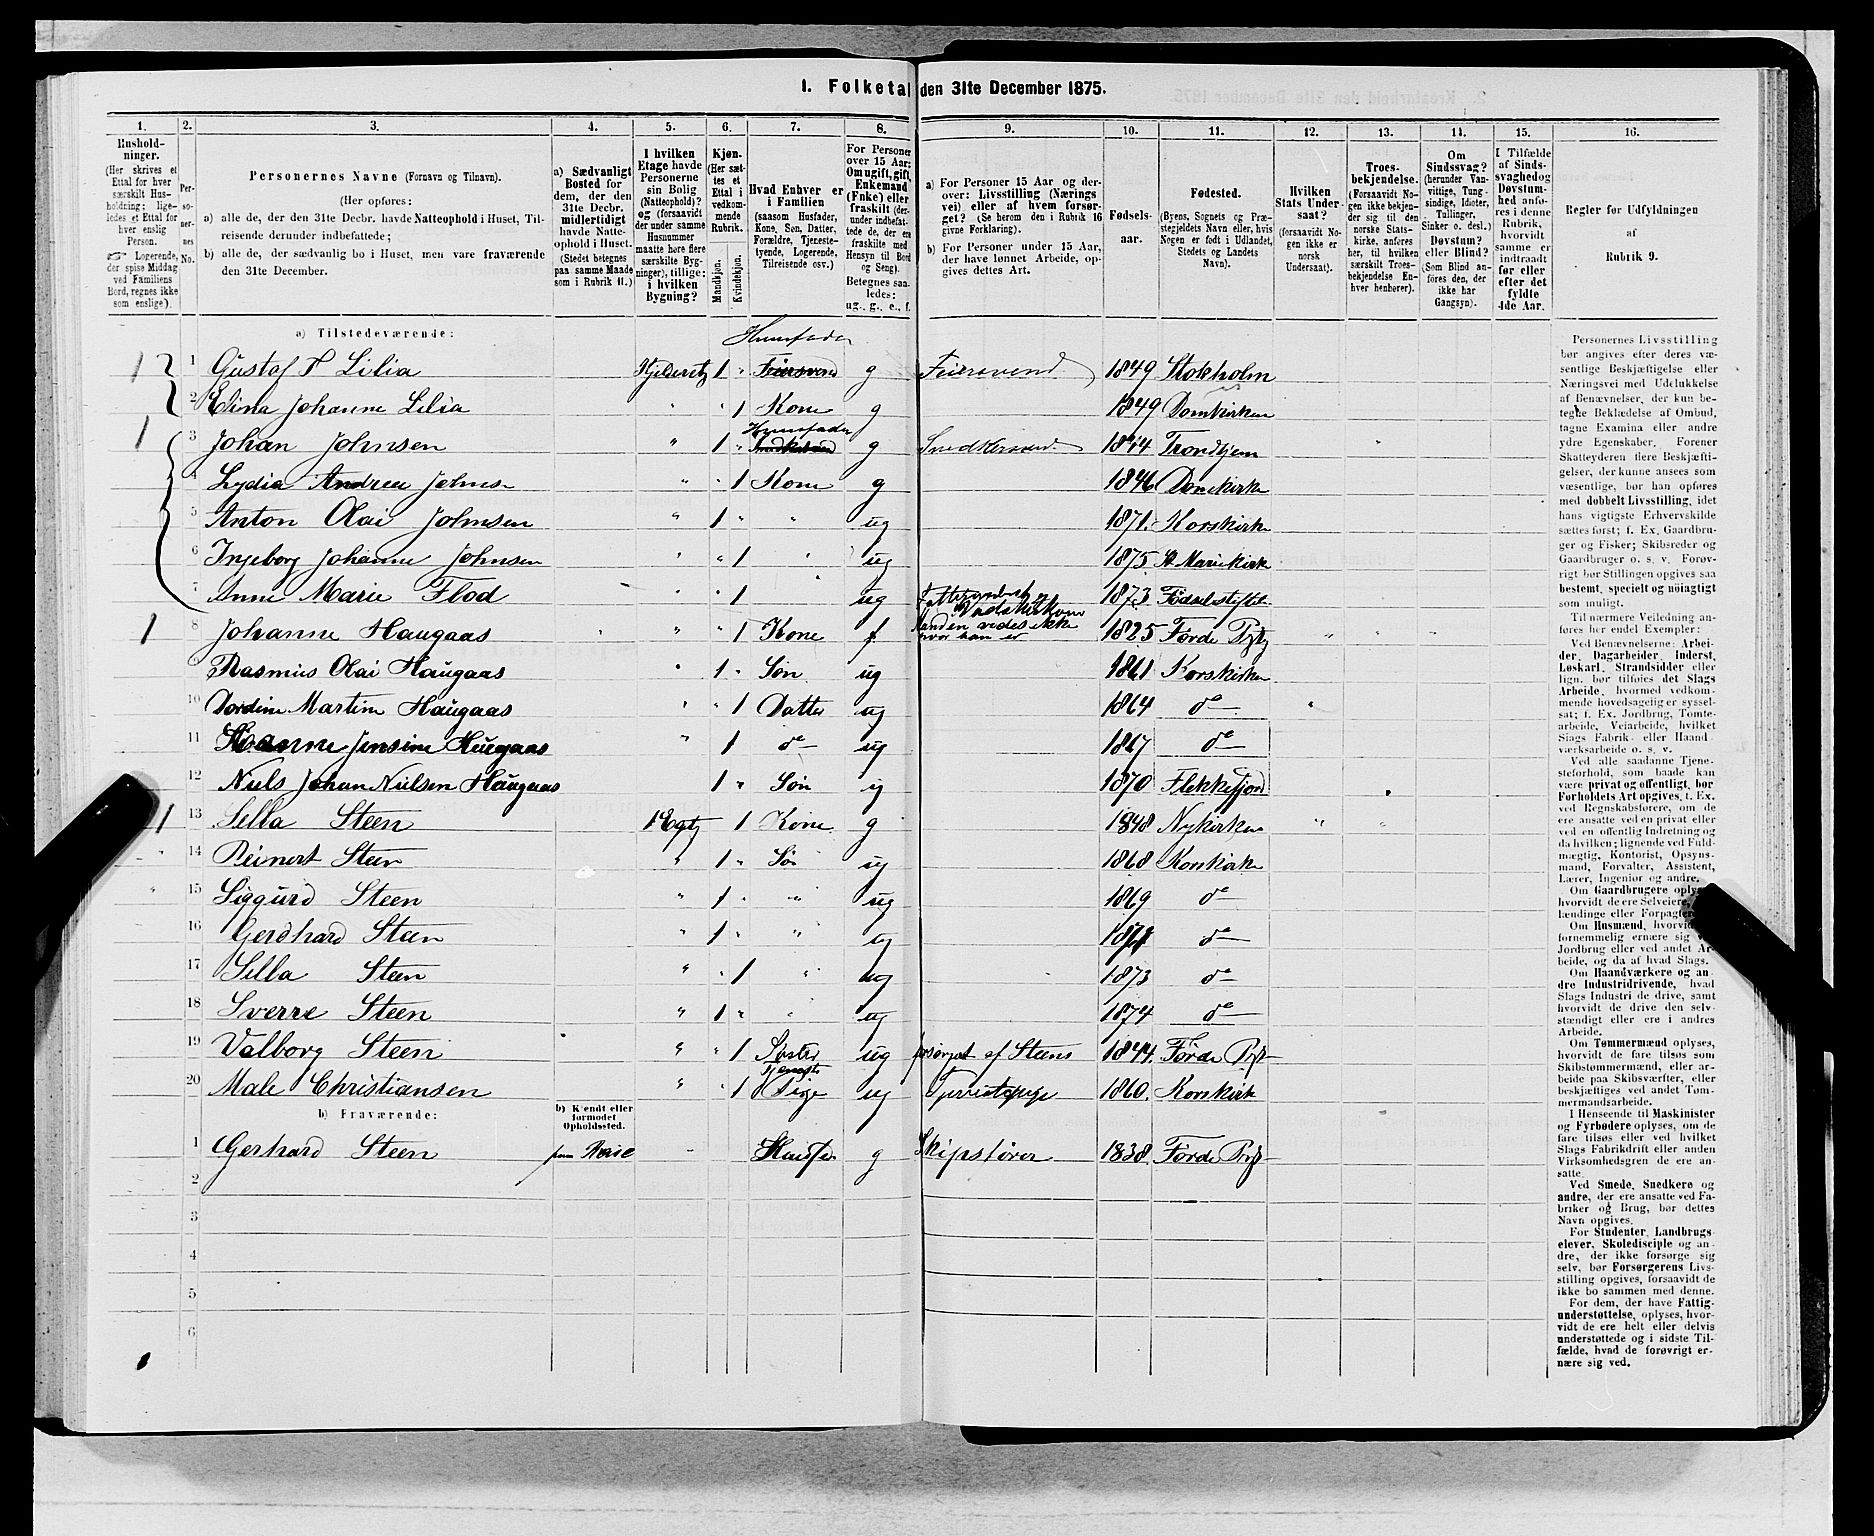 1. Folketal den 31te December 1875.
1. 2. 3. 4. 5. 6. 7. 8. 9. 10. 11. 12. 13. 14. 15. 16.
Hushold-
ninger.
(Her skrives et
Ettal for hver
særskilt Hus-
holdning; lige-
ledes et Ettal for
hver enslig
Person.
☞ Logerende,
der spise Middag
ved Familiens
Bord, regnes ikke
som enslige).
Per-
so-
ner-
nes
No.
Personernes Navne (Fornavn og Tilnavn).
(Her opføres:
a) alle de, der den 31te Decbr. havde Natteophold i Huset, Til-
reisende derunder indbefattede;
b) alle de, der sædvanlig bo i Huset, men vare fraværende
den 31te December.
a) Sædvanligt
Bosted for
dem, der den
31te Decbr.
midlertidigt
havde Natte-
ophold i Huset.
(Stedet betegnes
paa samme Maade
som i Rubrik 11.)
I hvilken
Etage havde
Personerne
sin Bolig
(Natteophold)?
og (forsaavidt
der under samme
Husnummer
maatte høre flere
særskilte Byg-
ninger), tillige:
i hvilken
Bygning?
Kjøn.
(Her sæt-
tes et
Ettal i
vedkom-
mende
Rubrik.
Mandkjøn.
Kvindekjøn.
Hvad Enhver er
i Familien
(saasom Husfader,
Kone, Søn, Datter,
Forældre, Tjeneste-
tyende, Logerende,
Tilreisende osv.)
For Personer
over 15 Aar:
Om ugift, gift,
Enkemand
(Enke) eller
fraskilt (der-
under indbefat-
tede de, der ere
fraskilte med
Hensyn til Bord
og Seng).
Betegnes saa-
ledes:
ug., g., e., f.
a) For Personer 15 Aar og der-
over: Livsstilling (Nærings
vei) eller af hvem forsør-
get? (Se herom den i Rubrik 16
givne Forklaring).
b) For Personer under 15 Aar,
der have lønnet Arbeide, op-
gives dettes Art.
Fødsels-
aar.
Fødested.
(Byens, Sognets og Præ-
stegjeldets Navn eller, hvis
Nogen er født i Udlandet,
Stedets og Landets
Navn).
Hvilken
Stats Under-
saat?
(forsaavidt No-
gen ikke er
norsk
Undersaat).
Troes-
bekjendelse.
(Forsaavidt No-
gen ikke bekjen-
der sig til den
norske Stats-
kirke, anføres
her, til hvilken
særskilt Troes-
bekjendelse En-
hver henhører).
Om
Sindssvag?
(herunder Van-
vittige, Tung-
sindige, Idioter,
Tullinger,
Sinker o. desl.)
Døvstum?
eller Blind?
(Som Blind an-
føres den, der
ikke har
Gangsyn).
I Tilfælde
af Sinds-
svaghed og
Døvstum-
hed anfø-
res i denne
Rubrik,
hvorvidt
samme er
indtraadt
før eller
efter det
fyldte
4de Aar.
Regler for Udfyldningen
af
Rubrik 9.
a) Tilstedeværende:
Huusfader
1 1 Gustaf Lilia Kjelderetg 1 " Feiersvend g Feiersvend 1849 Stokholm
2 Elina Johanne Lilia " " 1 Kone g 1849 Domkirken
Huusfader
1 3 Johan Johnsen " 1 " g Snedkersvend 1844 Trondhjem
4 Lydia Andrea Johnsen " " 1 Kone g 1846 Domkirke
5 Anton Olai Johnsen " 1 " " ug 1871. Korskirke
6 Ingeborg Johanne Johnsen " " 1 " ug 1875. St Mariekirk
7 Anne Marie Flod " 1 ug 1873 Fødselsstiftel.
1 8 Johanne Haugaas " " 1 Kone f Manden vides ikke hvor han er 1825 Førde Pgtg
9 Rasmus Olai Haugaas " 1 " Søn ug 1861 Korskirken
10 Dordine Martine Haugaas " " 1 Datter ug 1864 do
11 Hanne Jensine Haugaas " 1 do ug 1867 do
12 Niels Johan Nielsen Haugaas 1 " Søn ug 1870 Flekkefjord
1 13 Sella Steen 1 Etg 1 Kone g 1848 Nykirken
14 Reinert Steen " 1 " Søn ug 1868 Korskirke
15 Siggurd Steen " 1 " " ug 1869 do
16 Gerdhard Steen " 1 " " ug 1871 do
17 Sella Steen " " 1 " ug 1873 do
18 Sverre Steen " 1 " " ug 1874 do
19 Valborg Steen " " 1 Søster ug forsørget af Steens 1844. Førde Pgt
20 Male Christiansen " 1 Tjeneste Pige ug 1860. Korskirk
b) Fraværende:
b) Kjendt eller
formodet
Opholdssted.
1 Gerhard Steen paa Reise Huusfa g Skipsfører 1838. Førde Pgt
2
3
4
5
6
Personernes Livsstilling
bør angives efter deres væ-
sentlige Beskjæftigelse eller
Næringsvei med Udelukkelse
af Benævnelser, der kun be-
tegne Beklædelse af Ombud,
tagne Examina eller andre
ydre Egenskaber. Forener
Skatteyderen flere Beskjæfti-
gelser, der kunne ansees som
væsentlige, bør han opføres
med dobbelt Livsstilling, idet
hans vigtigste Erhvervskilde
sættes først; f. Ex. Gaardbru-
ger og Fisker; Skibsreder og
Gaardbruger o. s. v. Forøv-
rigt bør Stillingen opgives saa
bestemt, specielt og nøiagtigt
som muligt.
Til nærmere Veiledning an-
føres her endel Exempler:
Ved Benævnelserne: Arbei-
der, Dagarbeider, Inderst,
Løskarl, Strandsidder eller
lign. bør tilføies det Slags
Arbeide, hvormed vedkom-
mende hovedsagelig er syssel-
sat; f. Ex. Jordbrug, Tomte-
arbeide, Veiarbeide, hvilket
Slags Fabrik- eller Haand-
værksarbeide o. s. v.
Ved alle saadanne Tjene-
steforhold, som baade kan
være privat og offentligt, bør
Forholdets Art opgives, t. Ex.
ved Regnskabsførere, om de
ere ansatte ved en privat eller
ved en offentlig Indretning og
da hvilken; lignende ved Fuld-
mægtig, Kontorist, Opsyns-
mand, Forvalter, Assistent,
Lærer, Ingeniør og andre.
Om Gaardbrugere oplyses,
hvorvidt de ere Selveiere,
Lændinge eller Forpagtere.
Om Husmænd, hvorvidt de
fornemmelig ernære sig ved
Jordbrug eller ved andet Ar-
beide, og da af hvad Slags.
Om Haandværkere og an-
dre Industridrivende, hvad
Slags Industri de drive, samt
hvorvidt de drive den selv-
stændigt eller ere i andres
Arbeide.
Om Tømmermænd oplyses,
hvorvidt de fare tilsøs som
Skibstømmermænd, eller ar-
beide paa Skibsværfter, eller
beskjæftiges ved andet Tøm-
mermandsarbeide.
I Henseende til Maskinister
og Fyrbødere oplyses, om de
fare tilsøs eller ved hvilket
Slags Fabrikdrift eller anden
Virksomhedsgren de ere an-
satte.
Ved Smede, Snedkere og
andre, der ere ansatte ved Fa-
briker og Brug, bør dettes
Navn opgives.
For Studenter, Landbrugs-
elever, Skoledisciple og an-
dre, der ikke forsørge sig
selv, bør Forsørgerens Livs-
stilling opgives, forsaavidt de
ikke bo sammen med denne.
For dem, der have Fattig-
understøttelse, oplyses, hvor-
vidt de ere helt eller delvis
understøttede og i sidste Til-
fælde, hvad de forøvrigt er-
nære sig ved.